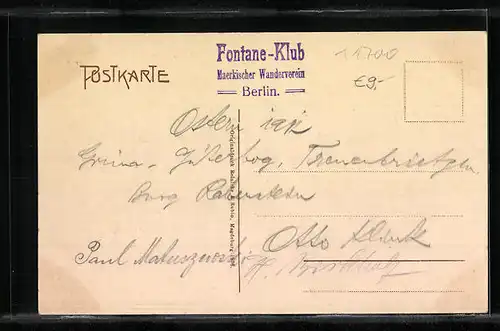 Fontane-Klub
Maerkischer Wanderverein
Berlin.
11700
€9,-
POSTKARTE
Ostern 1912
Grüna - Jüterbog, Treuenbrietzen
Burg Rabenstein
Otto Klink
Paul Matuszewski